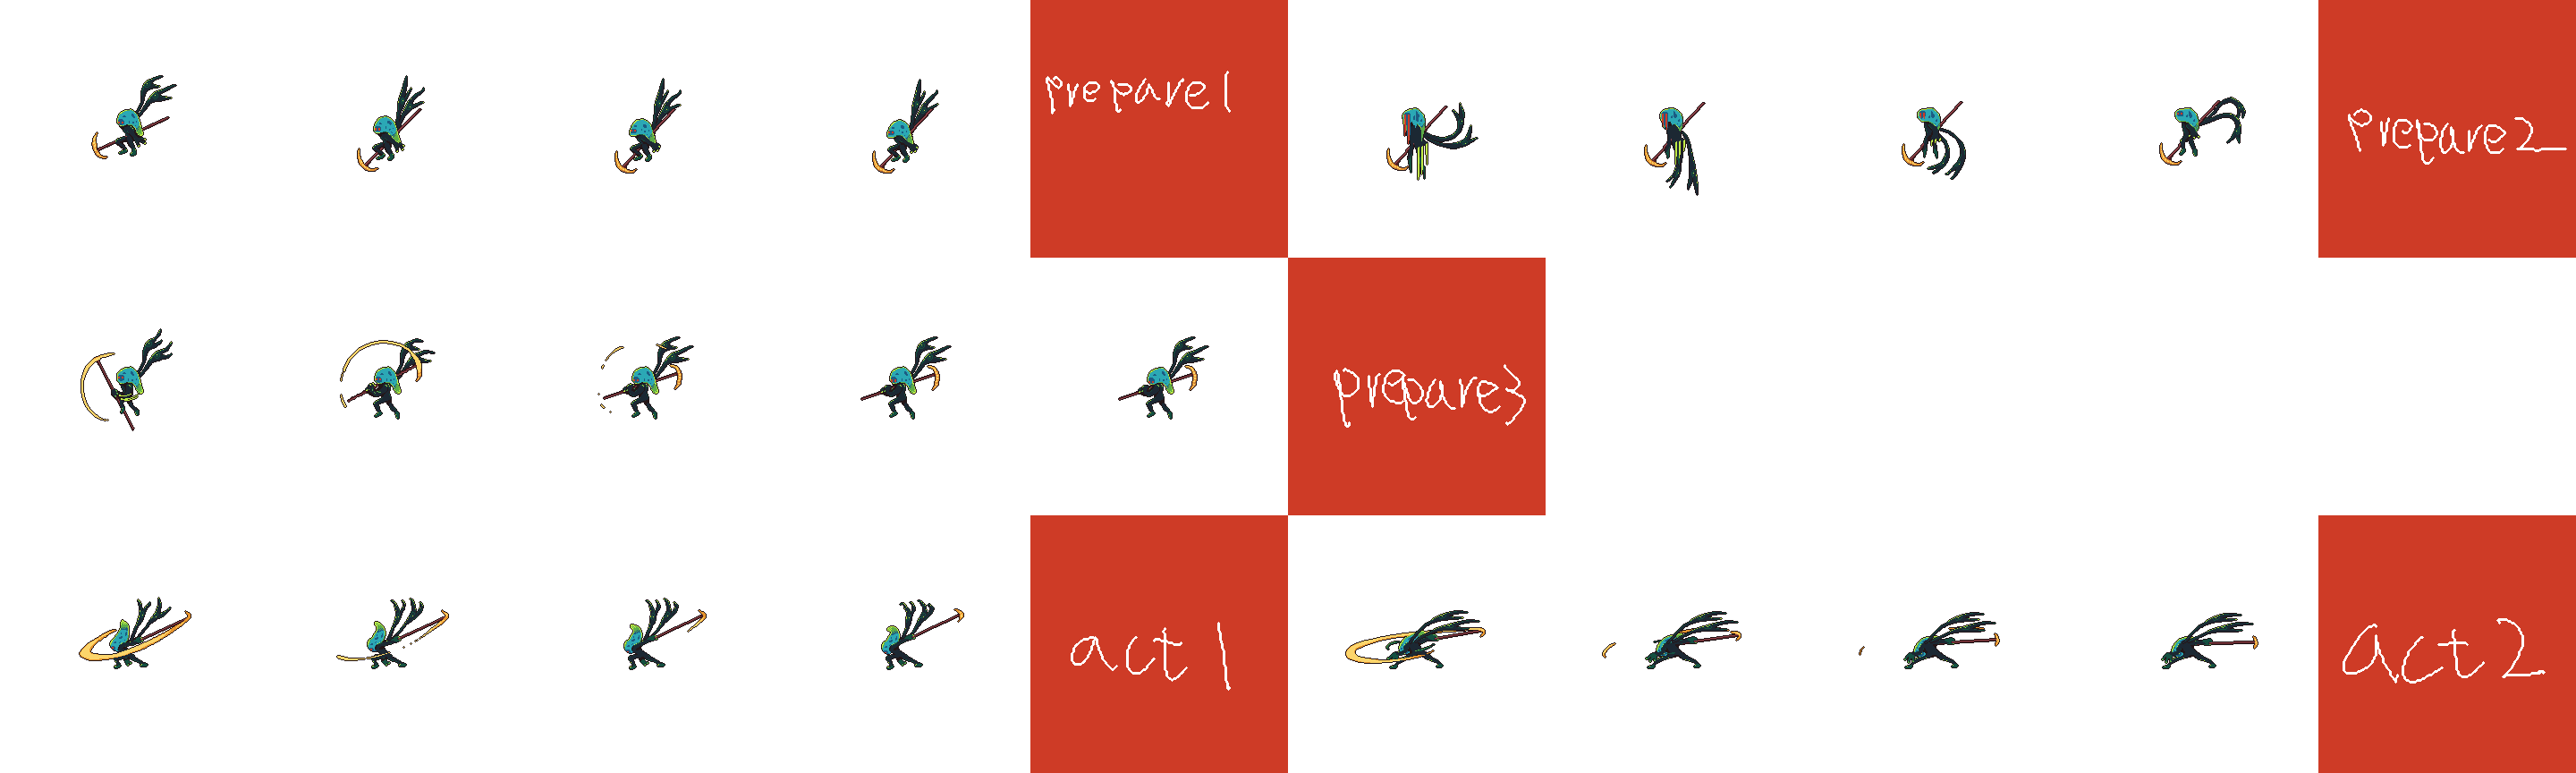 prepare1
prepare2
prepare3
act1
act2